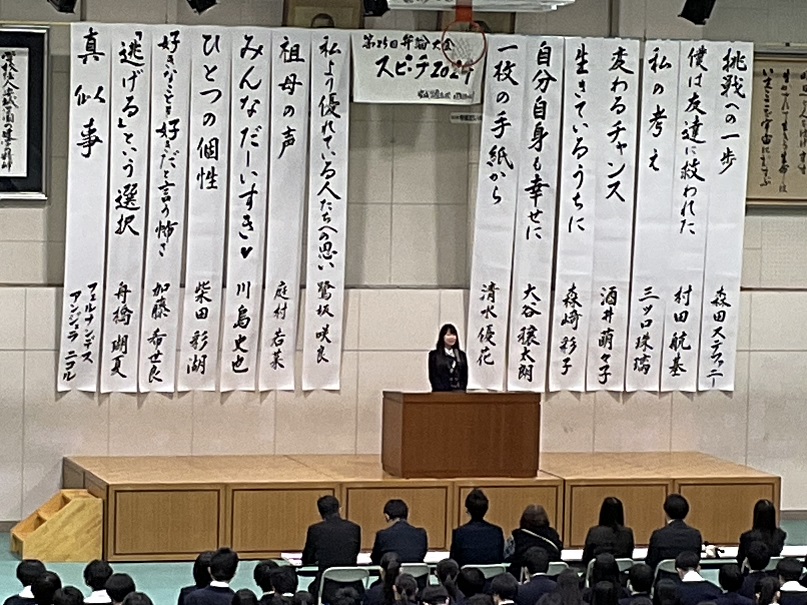 挑戦への一歩 森田ステファニー
僕は友達に救われた 村田航基
私の考え 三ツ口珠璃
変わるチャンス 酒井萌々子
生きているうちに 森崎彩子
自分自身も幸せに 大谷穣太朗
一枚の手紙から 清水優花
第25回弁論大会
スピーチ2024
私より優れている人たちへの思い 鷺坂咲良
祖母の声 庭村若菜
みんなだーいすき♥ 川島丈也
ひとつの個性 柴田彩湖
好きなことを好きだと言う怖さ 加藤希世良
「逃げる」という選択 舟橋瑚夏
真似事 フェルナンデス アンジェラ ニコル